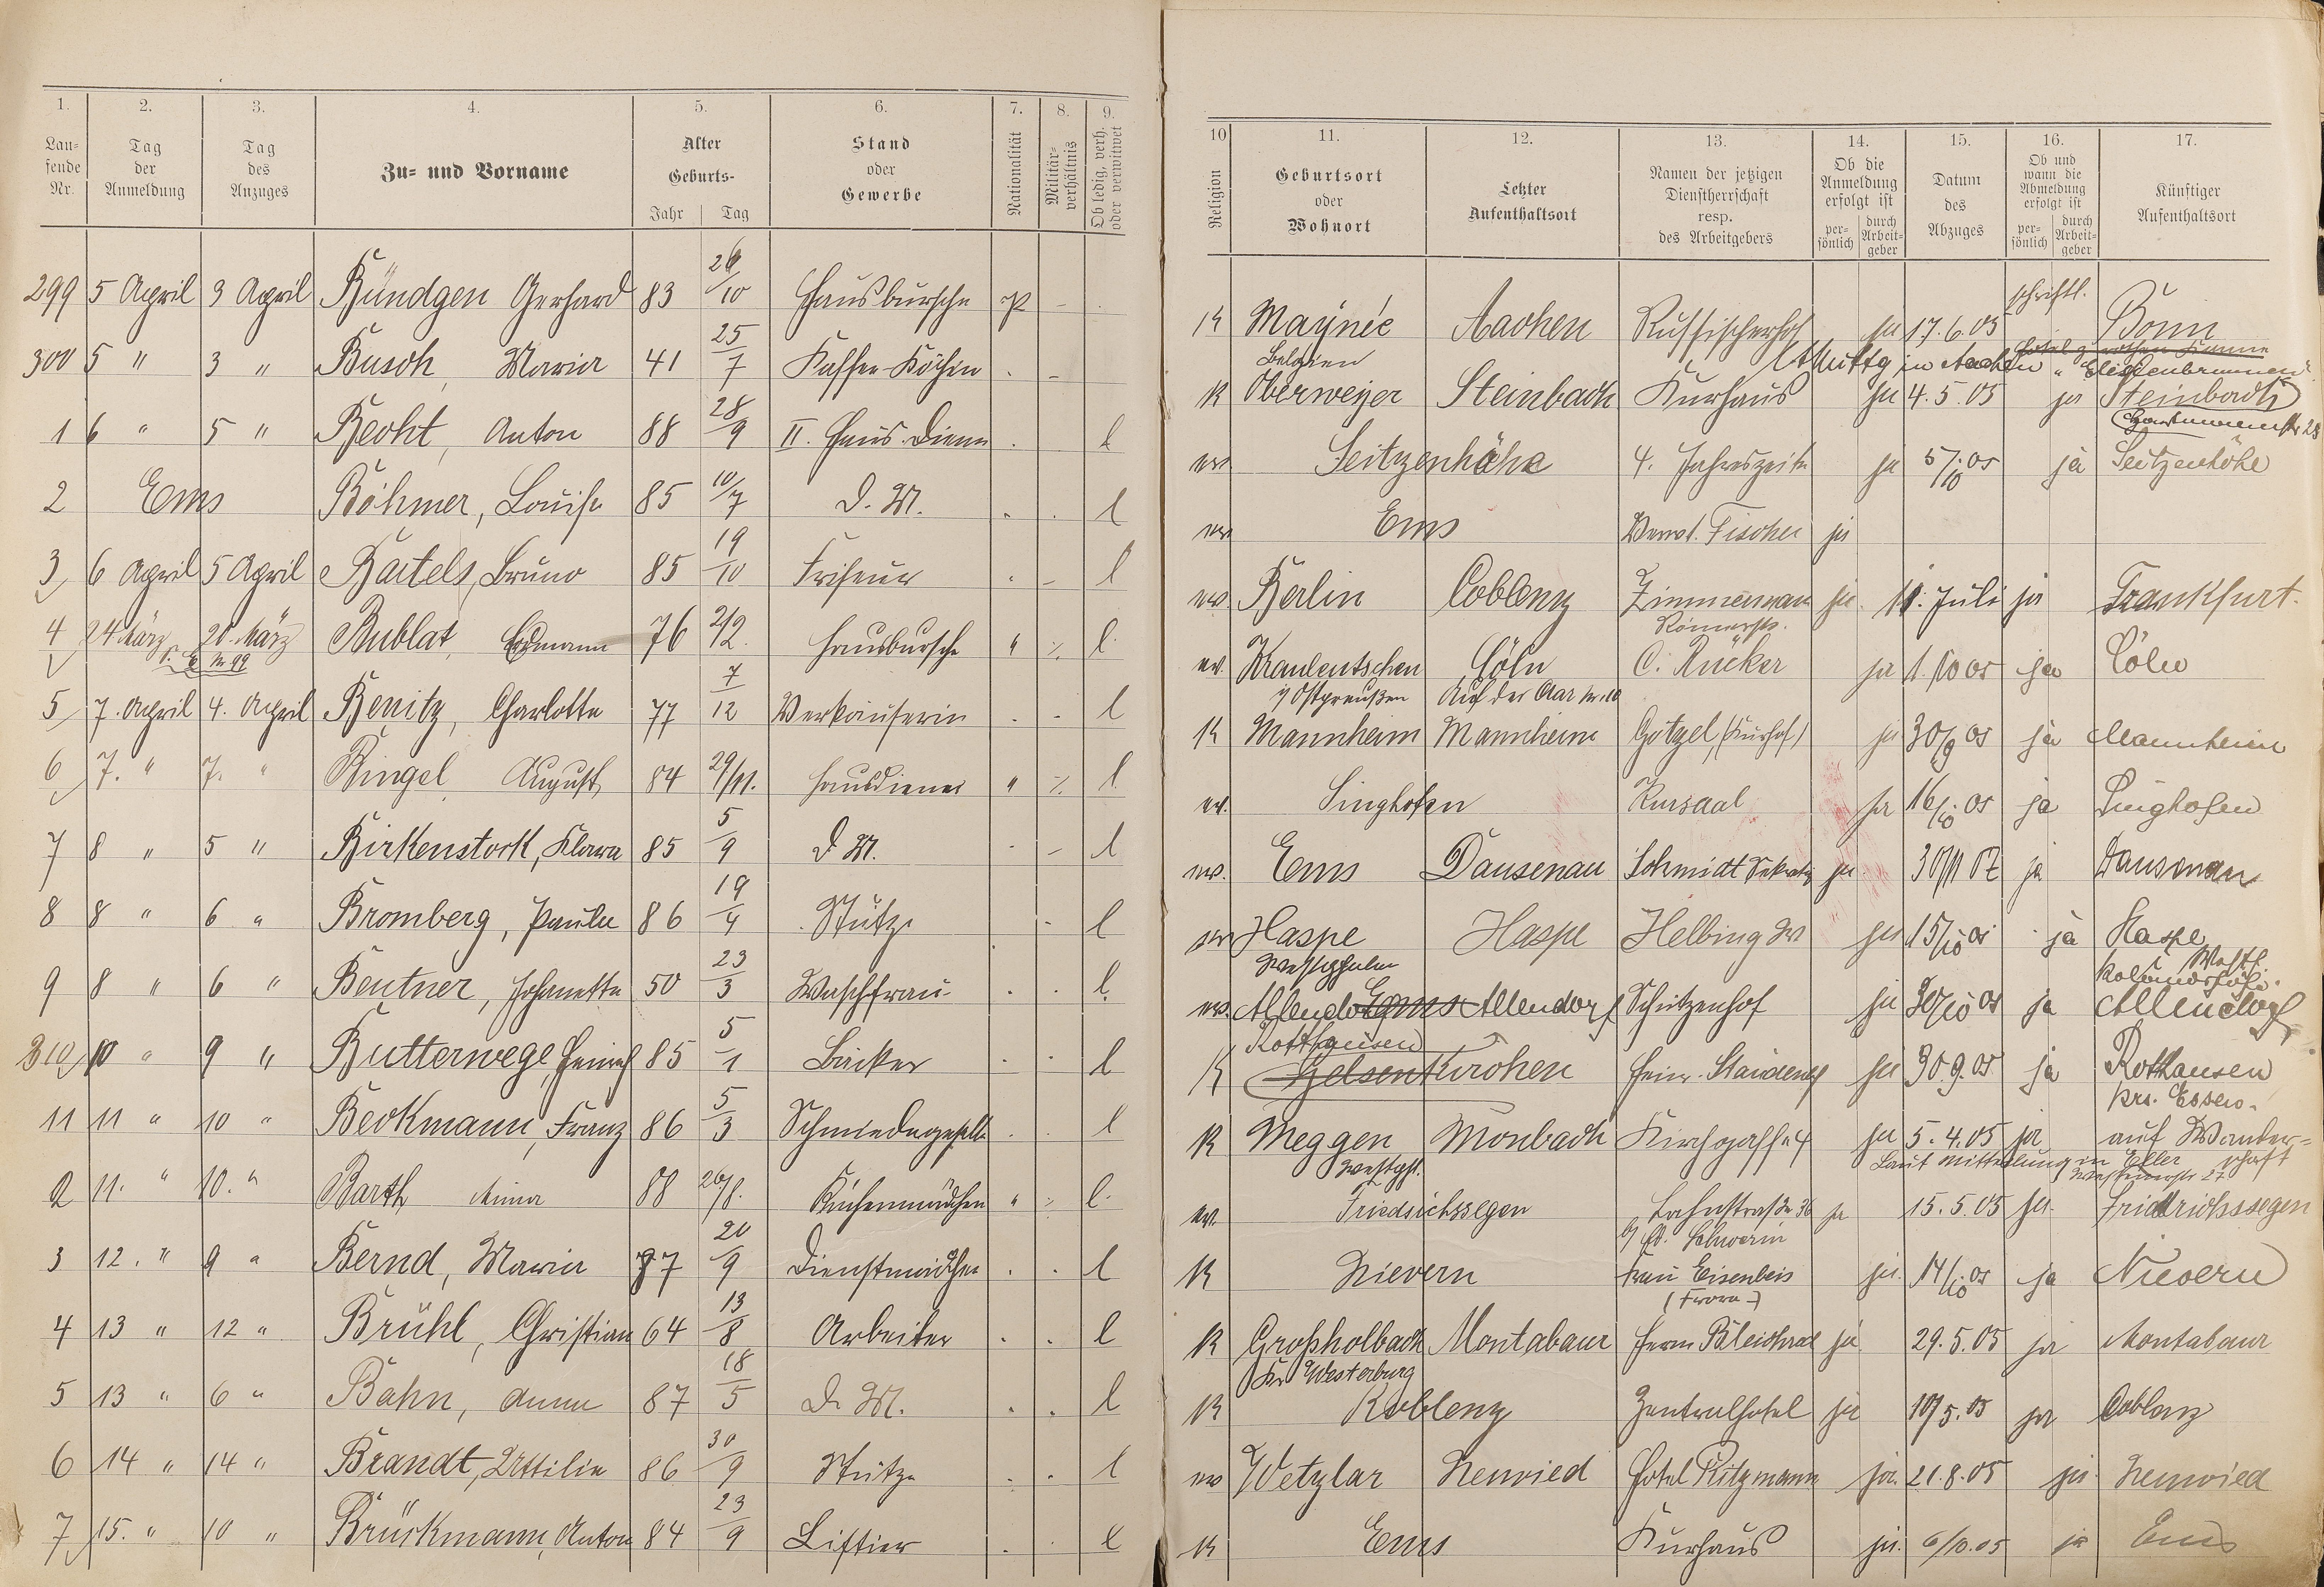 1. 2. 3. 4. 5. 6. 7. 8. 9.
Lau- fende Nr. Tag der Anmeldung Tag des Anzuges Zu- und Vorname Alter Geburts- Jahr Tag Stand oder Gewerbe Nationalität Militär- verhältnis Ob ledig, verh. oder verwitwet
10 11. 12. 13. 14. 15. 16. 17.
Religion Geburtsort oder Wohnort Letzter Aufenthaltsort Namen der jetzigen Dienstherrschaft resp. des Arbeitgebers Ob die Anmeldung erfolgt ist per- sönlich durch Arbeit- geber Datum des Abzuges Ob und wann die Abmeldung erfolgt ist per- sönlich durch Arbeit- geber Künftiger Aufenthaltsort
299 5 April 3 April Bündgen Gerhard 83 26/10 Hausbursche P -
300 5 " 3 " Busch, Maria 41 25/7 Kaffee-Köchin . -
1 6 " 5 " Becht, Anton 88 28/9 II. Haus-Diener . l
2 Ems Böhmer, Louise 85 10/7 D. M. . . l
3 6 April 5 April Bartels, Bruno 85 19/10 Friseur . - l
4 24 März 20. März Bublat, Erdmann 76 2/2. Hausbursche " l.
5 7. April 4. April Benitz, Charlotte 77 7/12 Verkäuferin . . l
6 7. " 7. " Bingel, August 84 29/11. Hausdiener " l
7 8 " 5 " Birkenstock, Klara 85 5/9 D M. . - l
8 8 " 6 " Bromberg, Paula 86 19/4 Stütze - l
9 8 " 6 " Beutner, Johanetta 50 23/3 Waschfrau . . l.
310 10 " 9 " Butterwege, Heinrich 85 5/1 Bäcker . . l
11 11 " 10 " Beckmann, Franz 86 5/3 Schmiedegeselle . . l
2 11. " 10. " Barth Anna 88 26/8. Küchenmädchen " l.
3 12. " 9 " Bernd, Maria 87 20/9 Dienstmädchen . . l
4 13 " 12 " Brühl, Christian 64 13/8 Arbeiter . . l
5 13 " 6 " Bahn, Anna 87 18/5 D. M. . . l
6 14 " 14 " Brandt, Ottilie 86 30/9 Stütze . . l
7 15. " 10 " Brückmann, Anton 84 23/9 Liftier . . l
schriftl.
K Maynée Aachen Russischerhof ja 17.6.05 Bonn
Belgien in Aachen "Elisenbrunnen"
K Oberweyer Steinbach Kurhaus ja 4.5.05 ja Steinbach
ev Seitzenhähn 4. Jahreszeiten ja 5/10 05 ja Seitzenhöhe
ev Ems Verw. Fischer ja
ev Berlin Coblenz Zimmermann ja 11. Juli ja Frankfurt.
Römerstr.
ev. Cöln C. Rücker ja 1.10 05 ja Cöln
i/ Ostpreußen Auf der Aar
K Mannheim Mannheim Götzel (Kurhof) ja 30/9 05 ja Mannheim
ev. Singhofen Kursaal ja 16/10 05 ja Singhofen
ev. Ems Dausenau Schmidt ja ja Dausenau
ev Haspe Haspe Helbing ja 15/10 05 ja Haspe
Westphalen i Westf.
ev. Allendorf Ems Allendorf Schützenhof ja 30/10 05 ja Allendorf
Rotthausen
K Gelsenkirchen Heinr. ja 30.9.05 ja Rotthausen
Krs. Essen.
K Meggen Monbach Kirchgasse 4 ja 5.4.05 ja auf Wander-
Westph. Laut Mitteilung in Eller schaft
ev. Friedrichssegen Lahnstraße 36 ja 15.5.05 ja. Friedrichssegen
b/ Schwerin
K Nievern Frau Eisenbeis ja. 14/10 05 ja Nievern
K Großholbach Montabaur Herm Bleichrad ja 29.5.05 ja Montabaur
Kr Westerburg
K Koblenz Zentralhotel ja 10/5.05 ja Coblenz
ev Wetzlar Neuwied Hotel Ritzmann ja. 21.8.05 ja Neuwied
K Ems Kurhaus ja. 6/10.05 ja Ems